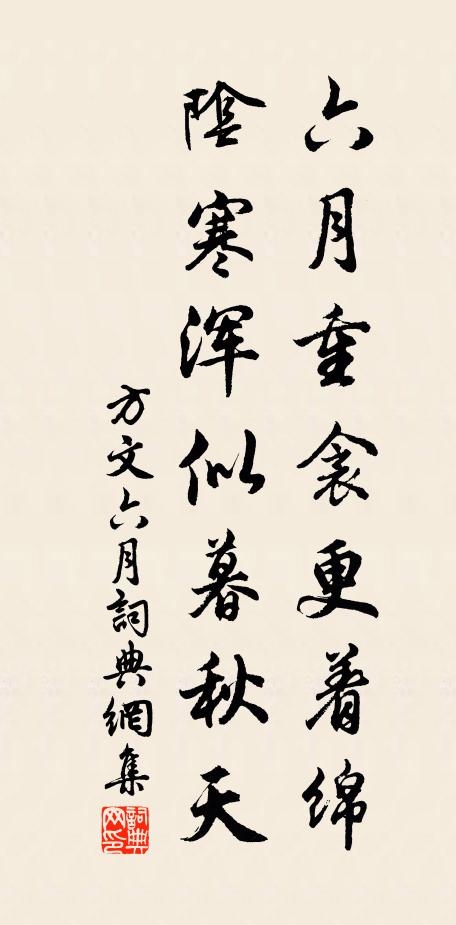 六月重衾更着绵
陰寒浑似暮秋天
方文六月詞典網集
詞典网印